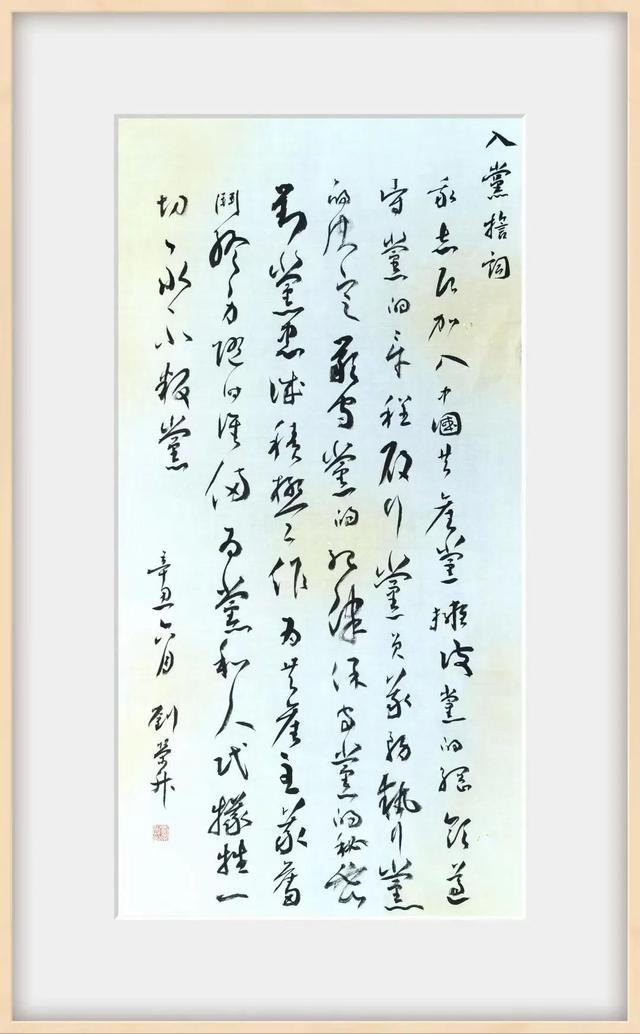 入黨誓詞
我志願加入中國共產黨擁護黨的綱領遵
守黨的章程履行黨員義務執行黨
的決定嚴守黨的紀律保守黨的秘密
對黨忠誠積極工作為共產主義奮
鬥終身隨時準備為黨和人民犧牲一
切永不叛黨
辛丑六月 劉榮升